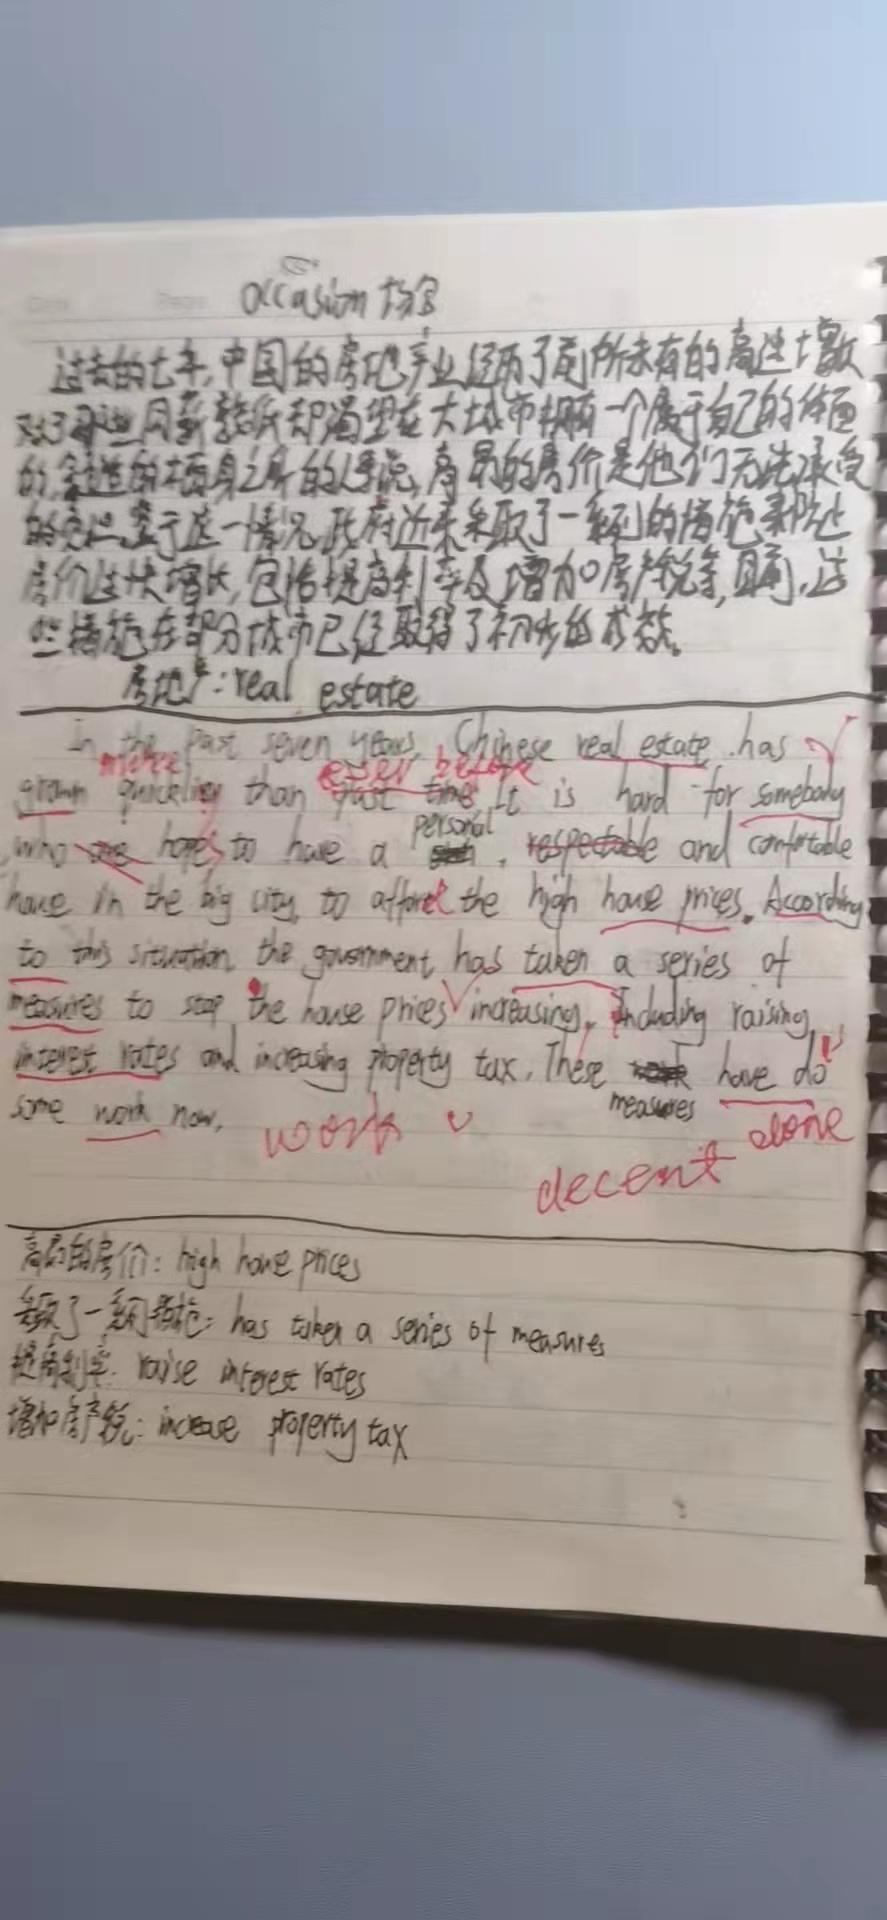 occasion 场合
过去的七年,中国的房地产业经历了前所未有的高速增长
对于那些月薪较低却渴望在大城市拥有一个属于自己的体面
的,舒适的栖身之所的人来说,高昂的房价是他们无法承受
的。鉴于这一情况,政府近来采取了一系列的措施来阻止
房价过快增长,包括提高利率及增加房产税等,目前,这
些措施在部分城市已经取得了初步的成效。
房地产:real estate
In the past seven years, Chinese real estate has
more ever before
grown quickling than past time. It is hard for somebody
personal
who are hopes to have a , respectable and comfortable
house in the big city, to afford the high house prices. According
to this situation, the government has taken a series of
measures to stop the house prices increasing, Including raising
interest rates and increasing property tax. These have do
measures
some work now.
work done
decent
高昂的房价: high house prices
采取了一系列措施: has taken a series of measures
提高利率: raise interest rates
增加房产税: increase property tax